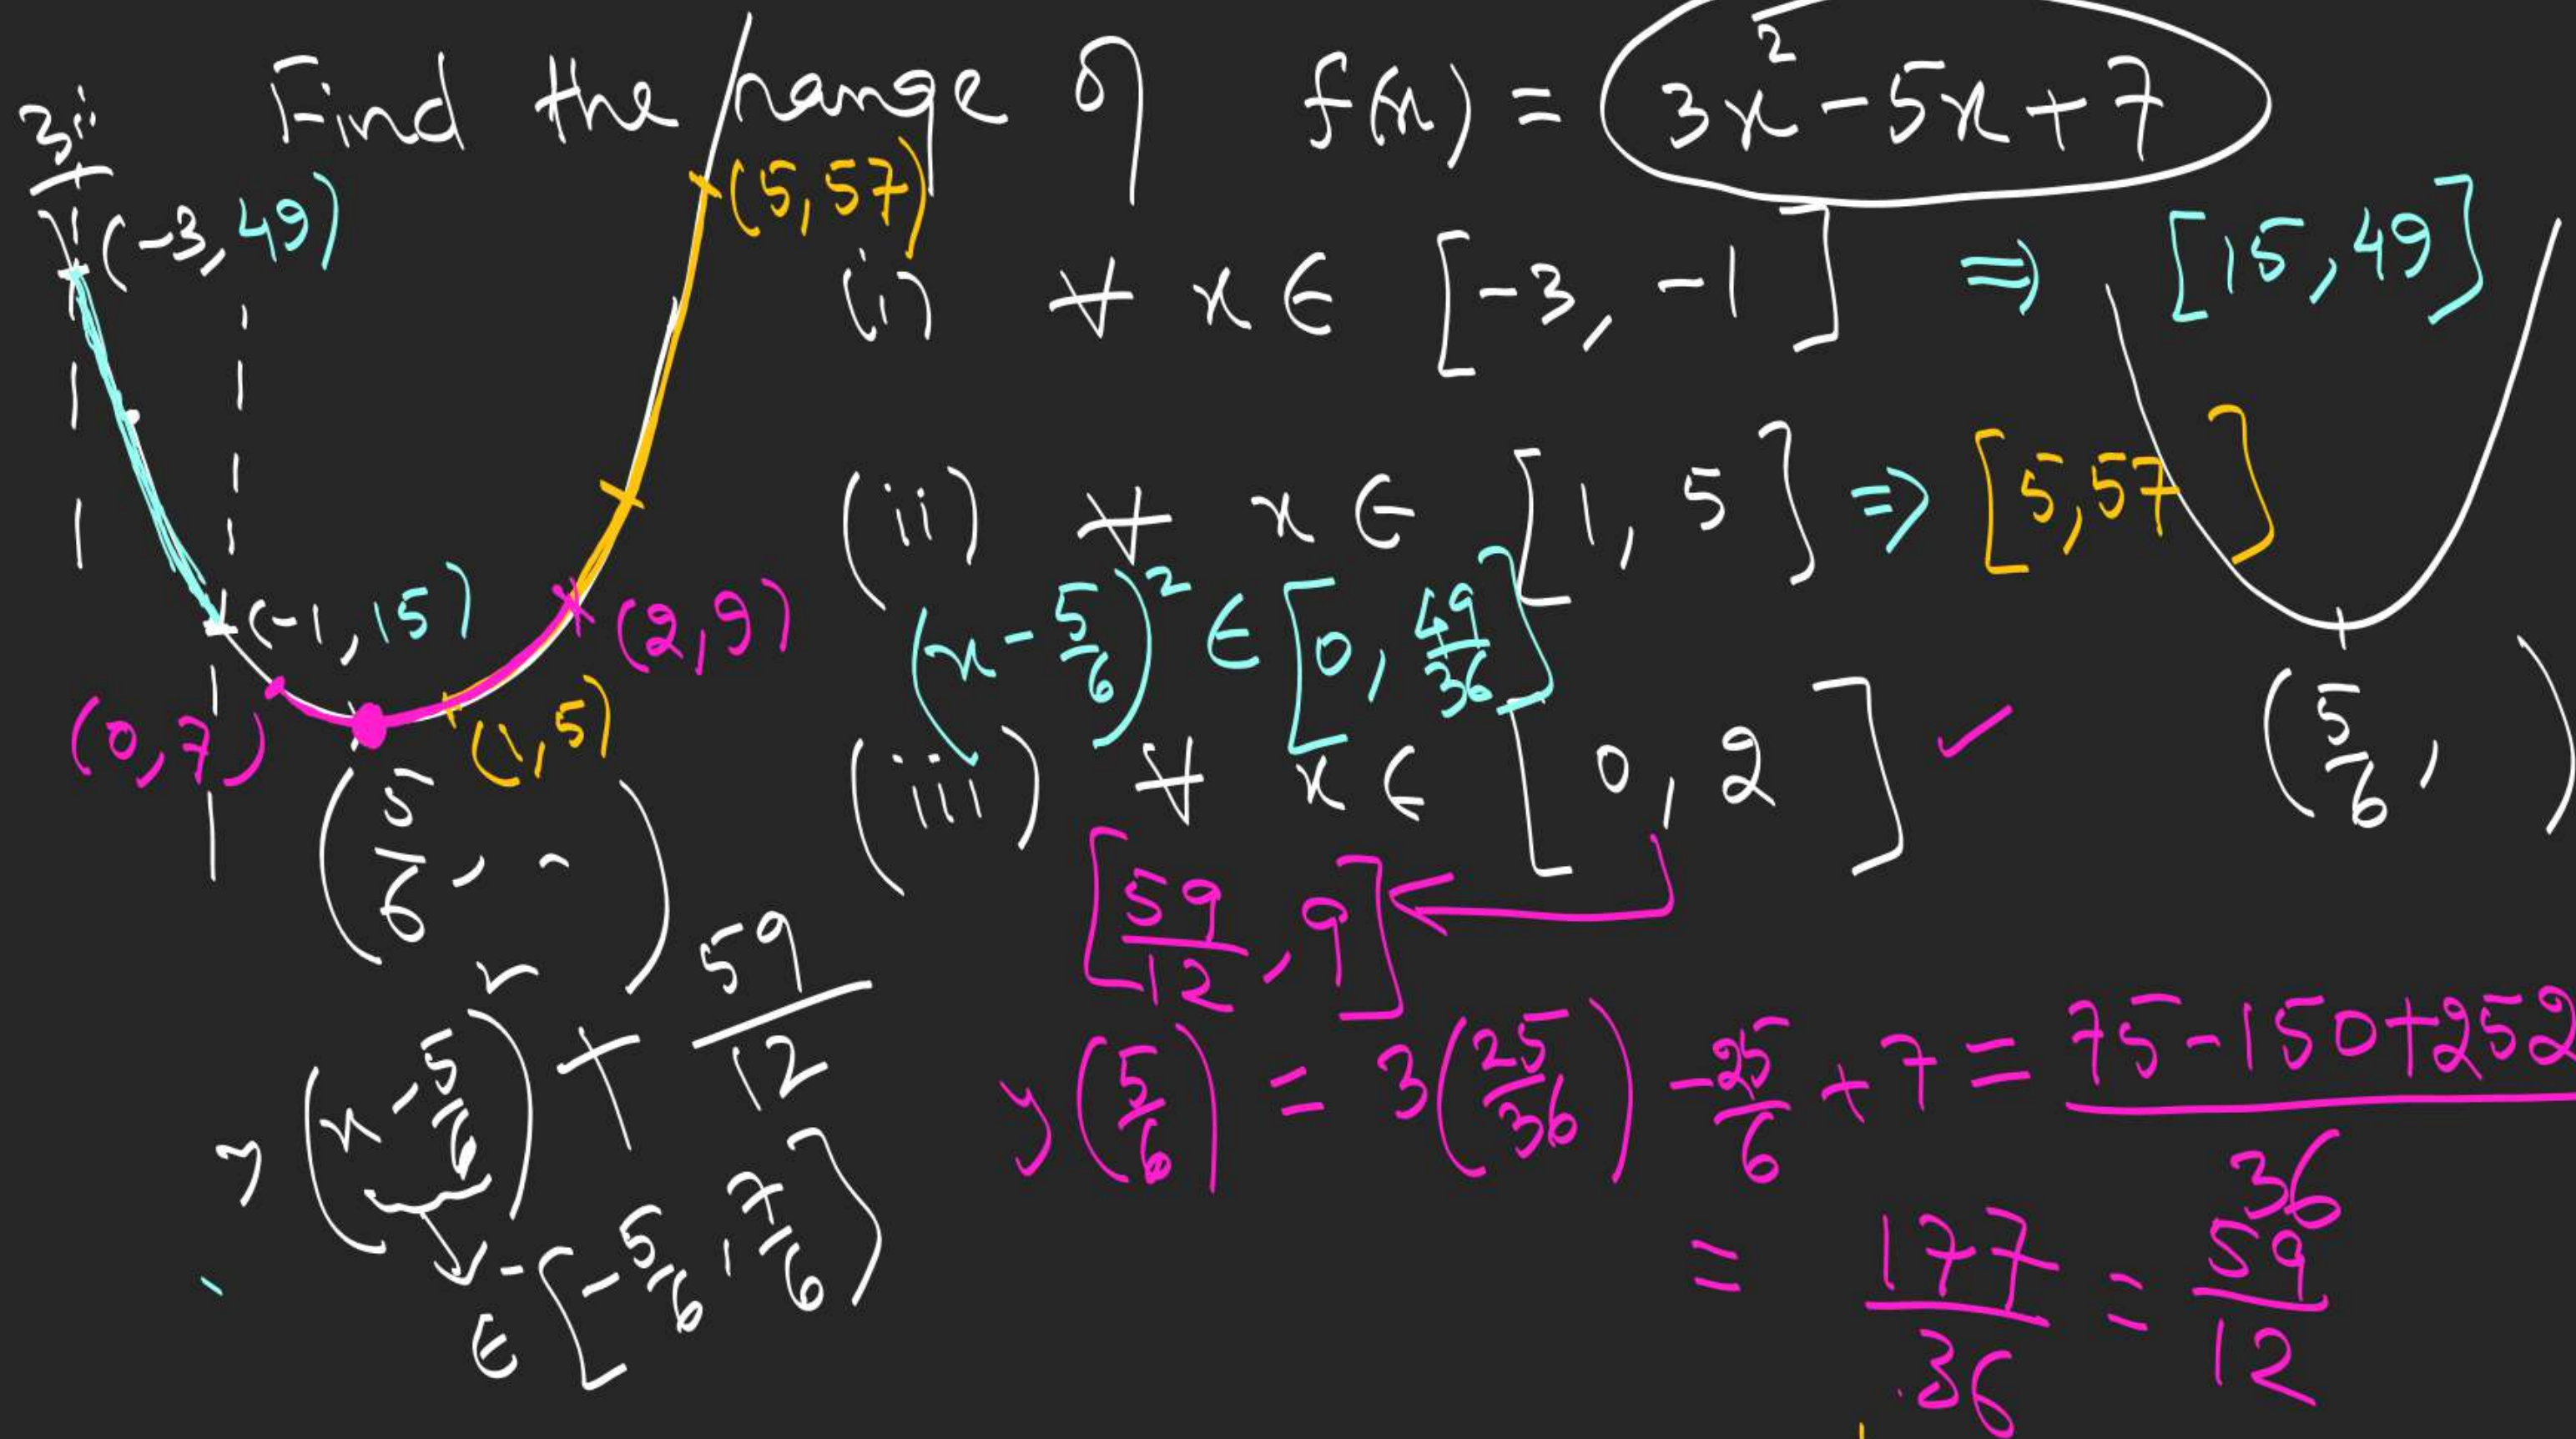 3:
Find the range of f(x) = 3x² - 5x + 7
(-3, 49)
(5, 57)
(i) ∀ x ∈ [-3, -1] ⇒ [15, 49]
(ii) ∀ x ∈ [1, 5] ⇒ [5, 57]
(-1, 15)
(2, 9)
(x - 5/6)² ∈ [0, 49/36]
(0, 7)
(1, 5)
(iii) ∀ x ∈ [0, 2] ✓
(5/6, )
(5/6, -)
[59/12, 9] ←
3(x - 5/6)² + 59/12
∈ [-5/6, 7/6]
y(5/6) = 3(25/36) - 25/6 + 7 = 75 - 150 + 252/36
= 177/36 = 59/12